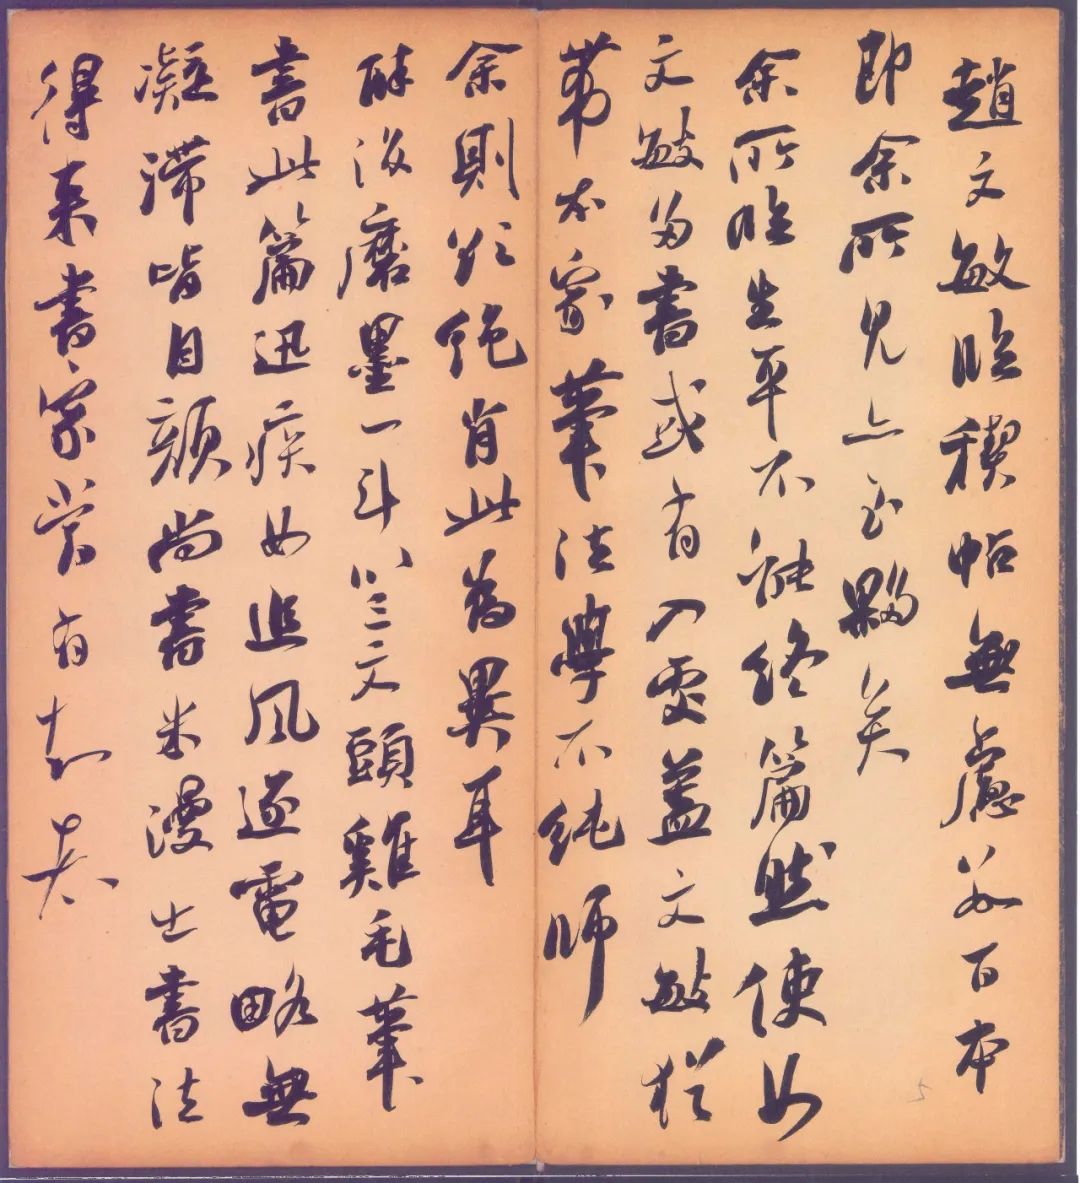 趙文敏臨稧帖無慮數百本
即余所見亦至夥矣
余所臨生平不能終篇然使如
文敏多書或有入處蓋文敏猶
帶本家筆法學不純師
余則欲絶肖此為異耳
酔後磨墨一斗以三文頭雞毛筆
書此篇迅疾如追風逐電略無
凝滯皆自顏尚書米漫士書法
得来書家當有知者